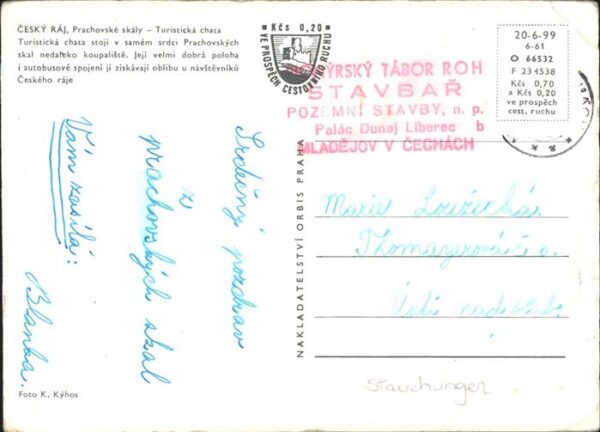 ČESKÝ RÁJ, Prachovské skály – Turistická chata
Turistická chata stojí v samém srdci Prachovských
skal nedaleko koupaliště. Její velmi dobrá poloha
i autobusové spojení jí získávají oblibu u návštěvníků
Českého ráje
Kčs 0,20
VE PROSPĚCH CESTOVNÍHO RUCHU
20-6-99
6-61
O 66532
F 234538
Kčs 0,70
a Kčs 0,20
ve prospěch
cest. ruchu
TÁBOR ROH
STAVBAŘ
POZEMNÍ STAVBY, n. p.
Palác Dunaj Liberec b
MLADĚJOV V ČECHÁCH
Srdečný pozdrav
z
prachovských skal
Vám zasílá:
Blanka.
NAKLADATELSTVÍ ORBIS PRAHA
Marie
Ústí nad
Foto K. Kýhos
Stauchungen